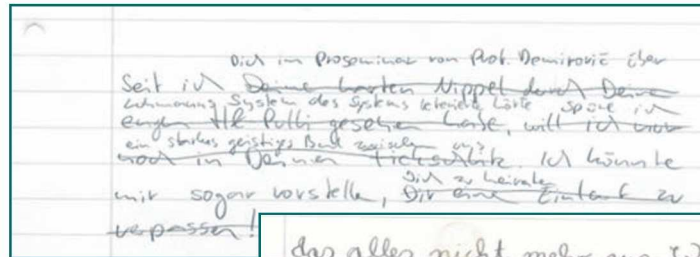 Dich im Proseminar von Prof. Demirović über
Seit ich Deine harten Nippel durch Deine
Luhmanns System des Systems referieren hörte, spüre ich
engen Pulli gesehen habe, will ich nur
ein starkes geistiges Band zwischen uns
noch in Deinen Fickschlitz. Ich könnte
Dich zu heiraten
mir sogar vorstelle, Dir eine Einlauf zu
verpassen!
das alles nicht mehr